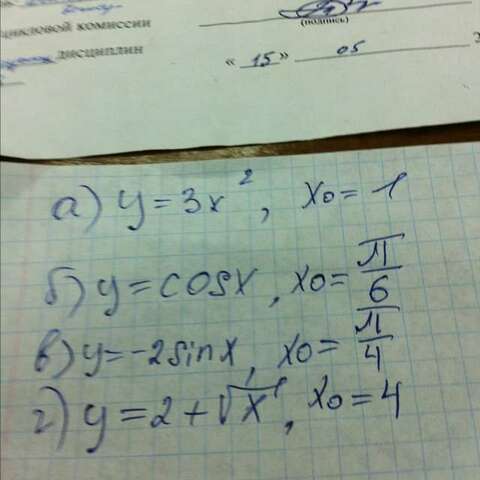 цикловой комиссии
(подпись)
дисциплин
« 15 » 05
а) y = 3x², x0 = 1
б) y = cosx, x0 = π/6
в) y = -2sinx, x0 = π/4
г) y = 2 + √x, x0 = 4